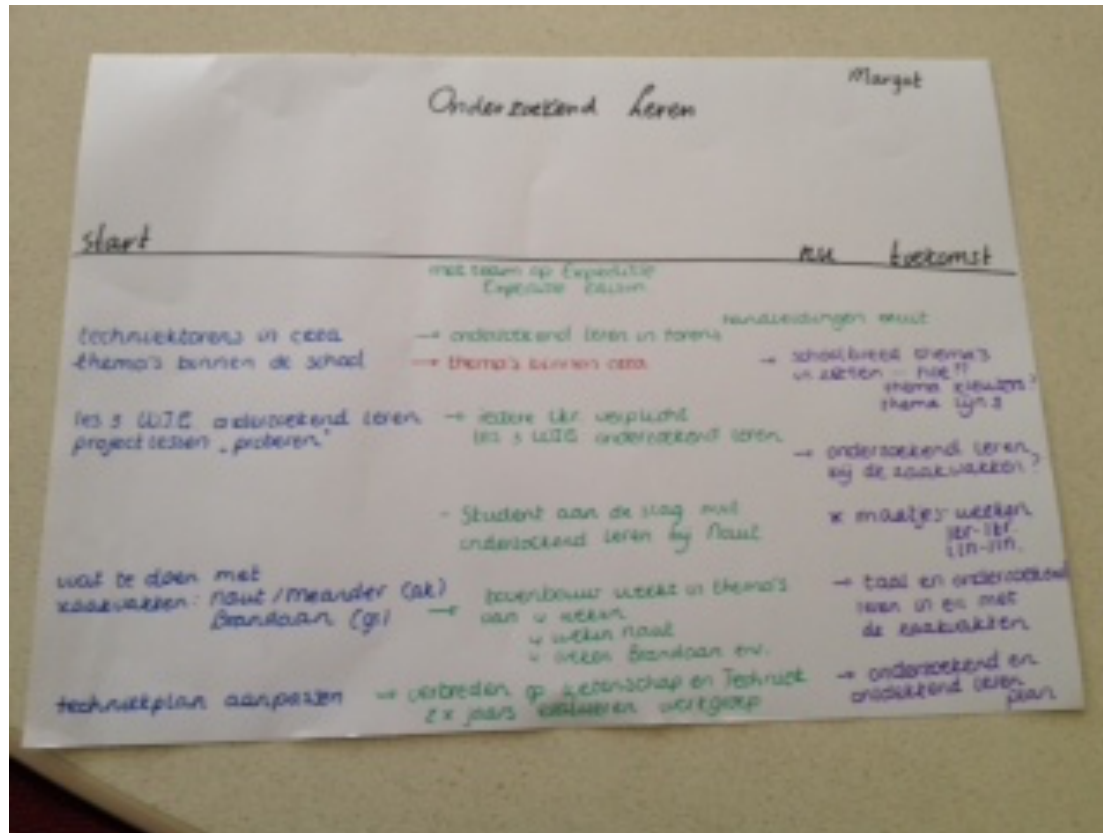 Margot
Onderzoekend leren
start
nu toekomst
met team op Expeditie
Expeditie
techniektorens in ceea
→ onderzoekend leren in torens
handleidingen eruit
thema's binnen de school
→ thema's binnen ceea
→ schoolbreed thema's
in zetten - hoe??
thema kleuters?
thema lijn 3
les 3 WTE onderzoekend leren
project lessen "proberen"
→ iedere lkr. verplicht
les 3 WTE onderzoekend leren
→ onderzoekend leren
bij de zaakvakken?
- Student aan de slag met
onderzoekend leren bij Naut
* maatjes weken
lkr-lkr.
lln-lln.
wat te doen met
zaakvakken: naut/meander (ak)
Brandaan (gs)
→ bovenbouw werkt in thema's
van 4 weken
4 weken naut
4 weken Brandaan env.
→ taal en onderzoekend
leren in en met
de zaakvakken
techniekplan aanpassen
→ verbreden op wetenschap en Techniek
2x jaars evalueren werkgroep
→ onderzoekend en
ontdekkend leren
plan